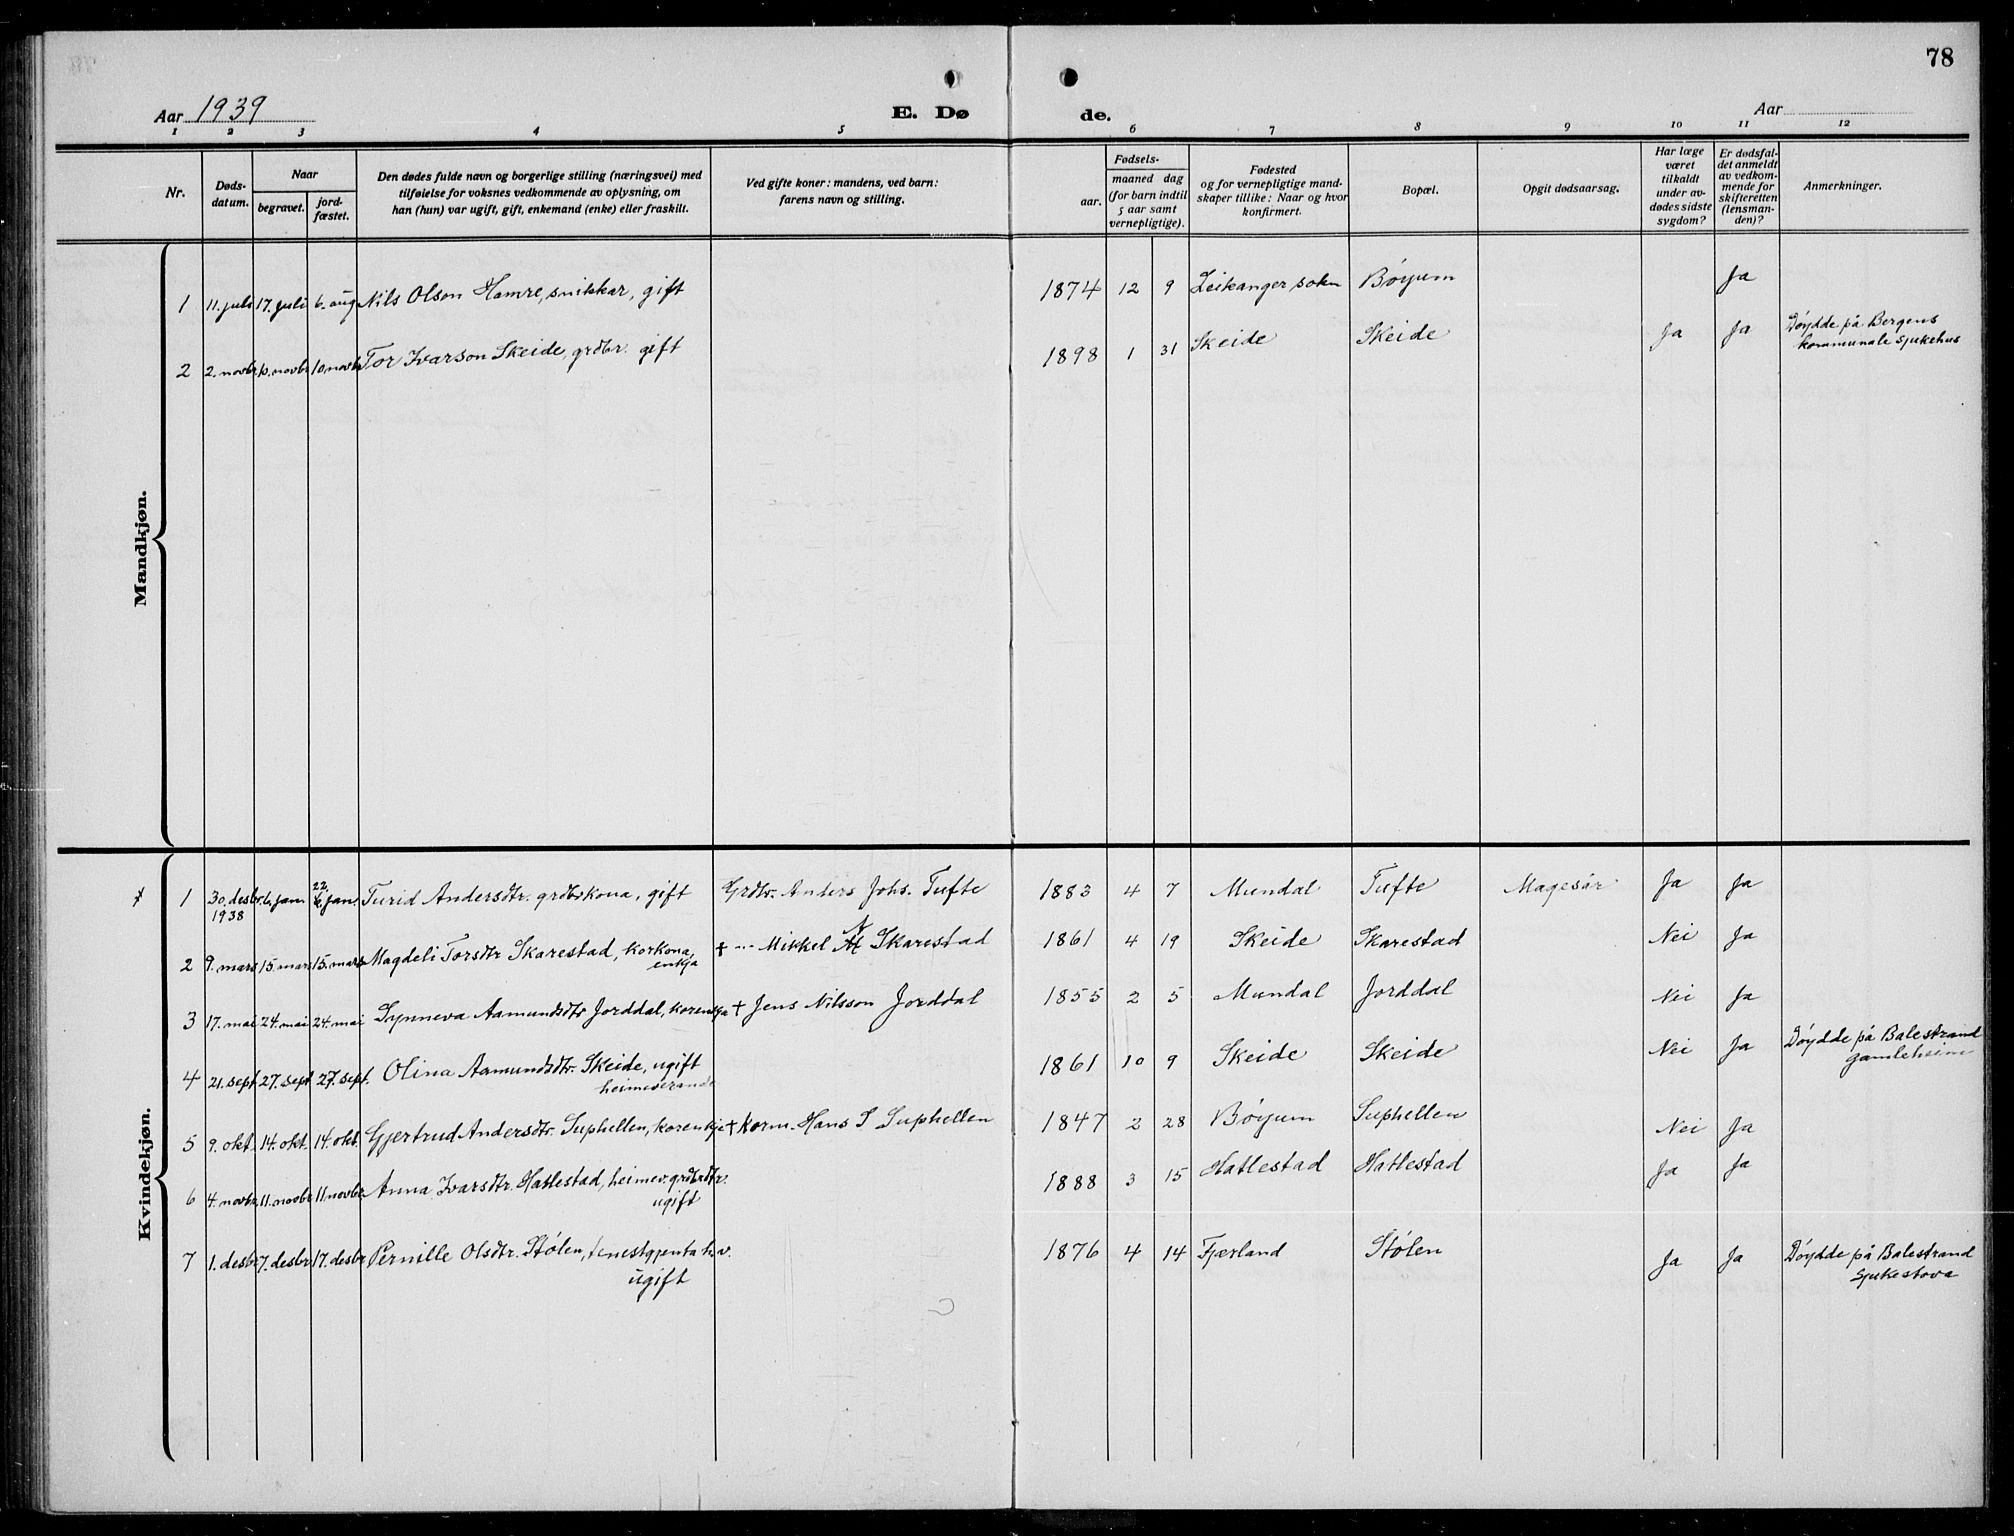 78
Aar 1939 E. Dø de. Aar
1 2 3 4 5 6 7 8 9 10 11 12
Nr.
Døds-
datum.
Naar
begravet.
jord-
fæstet.
Den dødes fulde navn og borgerlige stilling (næringsvei) med
tilføielse for voksnes vedkommende av oplysning, om
han (hun) var ugift, gift, enkemand (enke) eller fraskilt.
Ved gifte koner: mandens, ved barn:
farens navn og stilling.
Fødsels-
aar.
maaned dag
(for barn indtil
5 aar samt
vernepligtige).
Fødested
og for vernepligtige mand-
skaper tillike: Naar og hvor
konfirmert.
Bopæl.
Opgit dødsaarsag.
Har læge
været
tilkaldt
under av-
dødes sidste
sygdom?
Er dødsfal-
det anmeldt
av vedkom-
mende for
skifteretten
(lensman-
den)?
Anmerkninger.
Mandkjøn.
1 11. juli 17. juli 6. aug Nils Olson Hamre, snikkar, gift 1874 12 9 Leikanger sokn Bøyum Ja
2 2. novbr 10. novbr 10 novbr Tor Ivarson Skeide, grdbr. gift 1898 1 31 Skeide Skeide Ja Ja Døydde på Bergens
kommunale sjukehus
Kvindekjøn.
1 30. desbr. 1938 6. jan 22. jan. Turid Andersdtr. grdbrkona, gift Grdbr. Anders Johs. Tufte 1883 4 7 Mundal Tufte Magesår Ja Ja
2 9. mars 15. mars 15. mars Magdeli Torsdtr Skarestad, korkona, enkja + --- Mikkel N Skarestad 1861 4 19 Skeide Skarestad Nei Ja
3 17. mai 24. mai 24. mai Synneva Aamundsdtr Jorddal, korenkja + Jens Nilsson Jorddal 1855 2 5 Mundal Jorddal Nei Ja
4 21. sept 27. sept 27. sept. Olina Aamundsdtr. Skeide, ugift
heimeverande 1861 10 9 Skeide Skeide Nei Ja Døydde på Balestrand
gamleheim
5 9. okt. 14. okt. 14. okt. Gjertrud Andersdtr. Suphellen, korenkje + Korm. Hans I Suphellen 1847 2 28 Bøyum Suphellen Nei Ja
6 4. novbr. 11. novbr 11. novbr Anna Ivarsdtr. Hatlestad, heimev. grdbrdtr.
ugift 1888 3 15 Hatlestad Hatlestad Ja Ja
7 1. desbr 7. desbr 17. desbr Pernille Olsdtr. Stølen, tenestgjenta h.v.
ugift 1876 4 14 Fjærland Stølen Ja Ja Døydde på Balestrand
Sjukestova